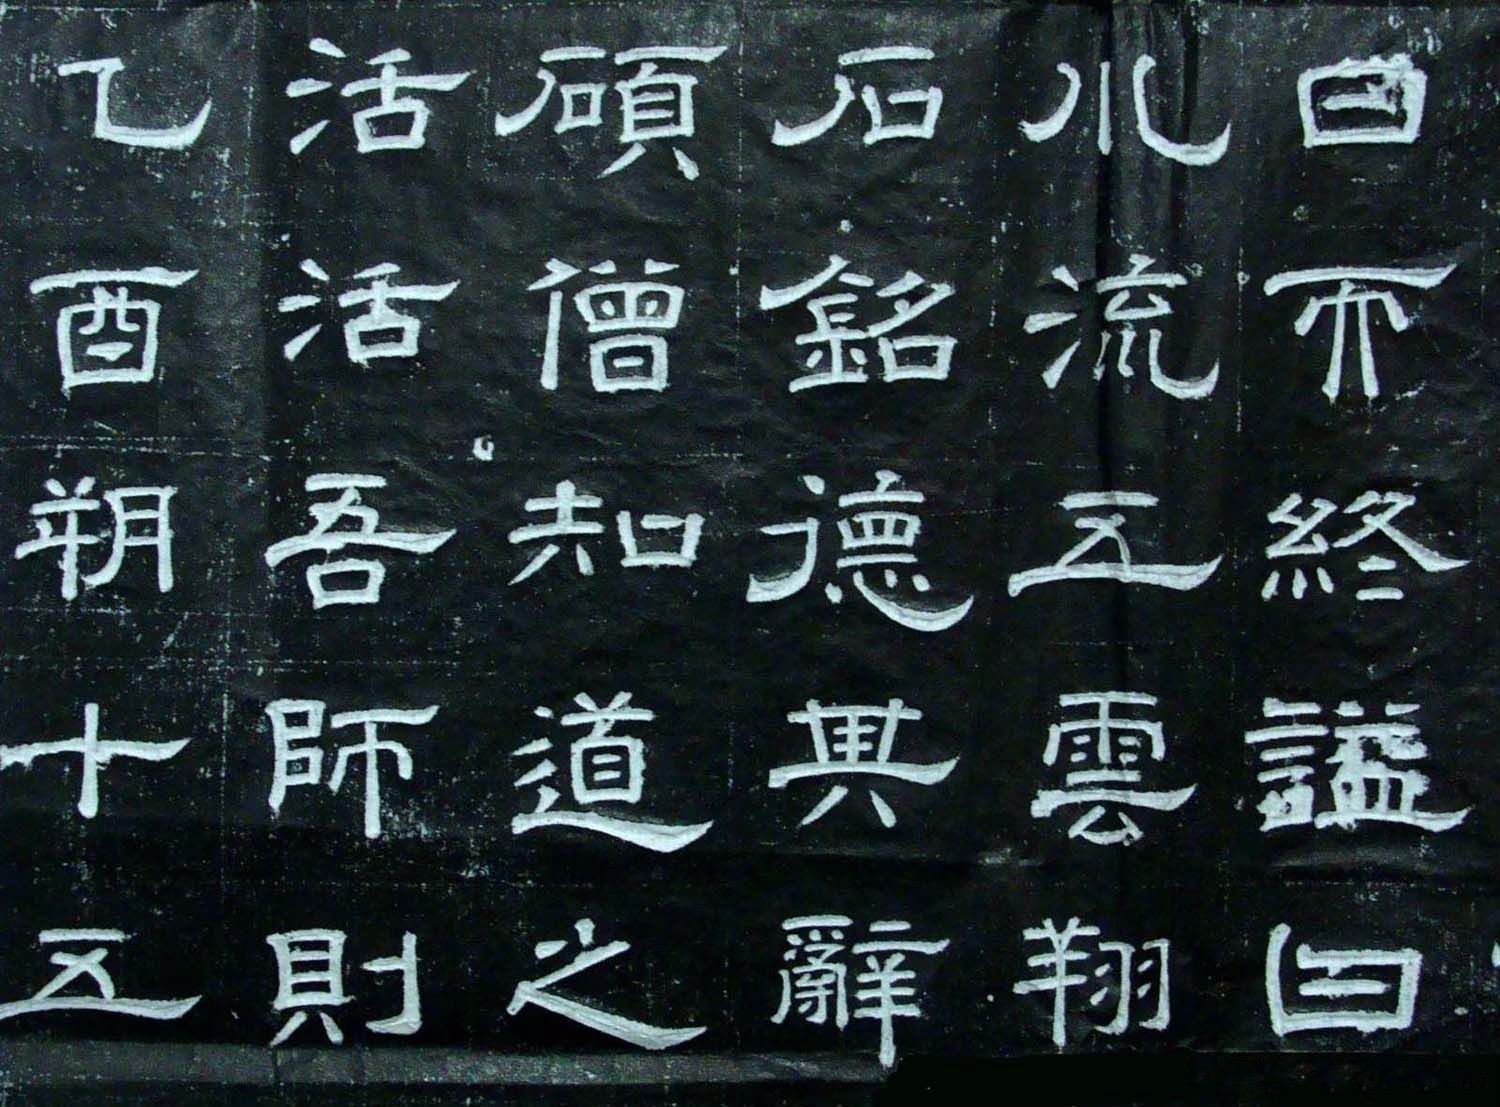 日而終謚曰
川流五雲翔
石銘德典辭
碩僧知道之
活活吾師則
乙酉朔十五